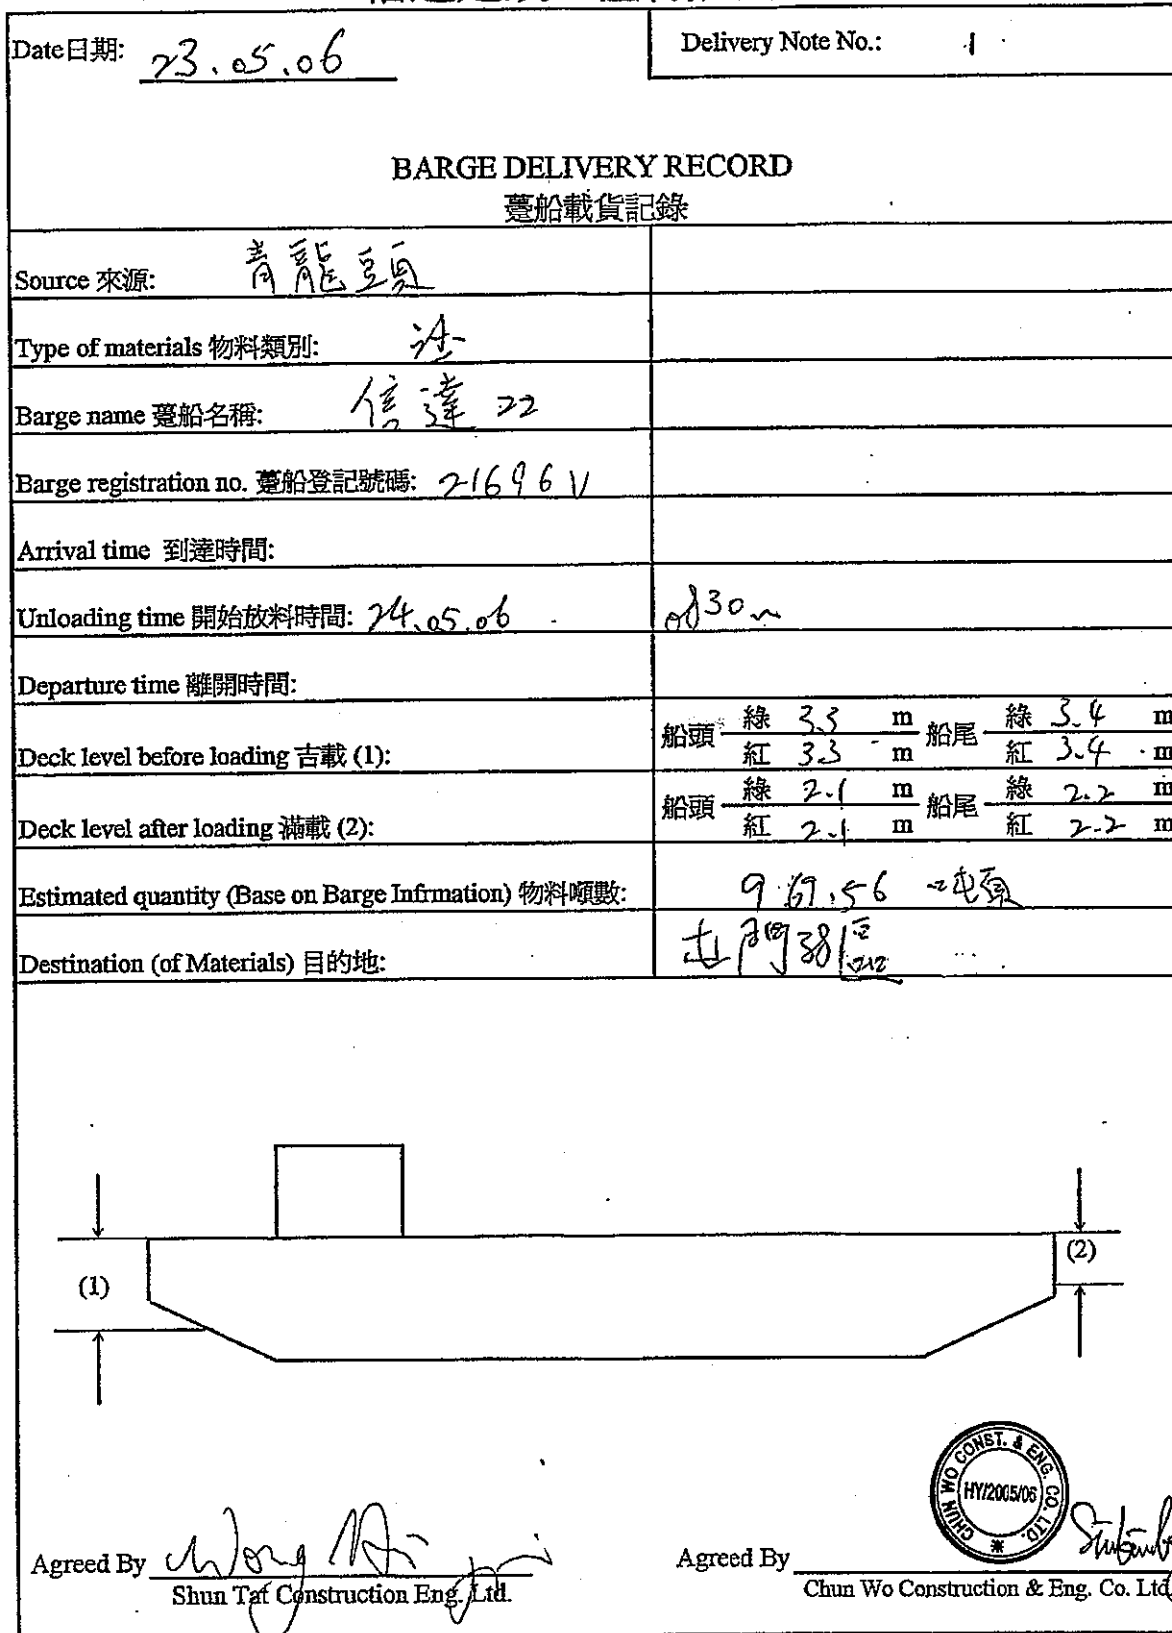 Date日期: 23.05.06
Delivery Note No.: 1
BARGE DELIVERY RECORD
躉船載貨記錄
Source 來源: 青龍頭
Type of materials 物料類別:
Barge name 躉船名稱: 信達 22
Barge registration no. 躉船登記號碼: 21696V
Arrival time 到達時間:
Unloading time 開始放料時間: 24.05.06 0830
Departure time 離開時間:
Deck level before loading 吉載 (1): 船頭 綠 3.3 m 船尾 綠 3.4 m
紅 3.3 m 紅 3.4 m
Deck level after loading 滿載 (2): 船頭 綠 2.1 m 船尾 綠 2.2 m
紅 2.1 m 紅 2.2 m
Estimated quantity (Base on Barge Infrmation) 物料噸數: 969.56
Destination (of Materials) 目的地: 屯門38區
(1)
(2)
CHUN WO CONST. & ENG. CO. LTD.
HY/2005/06
Agreed By Wong
Shun Tat Construction Eng. Ltd.
Agreed By
Chun Wo Construction & Eng. Co. Ltd